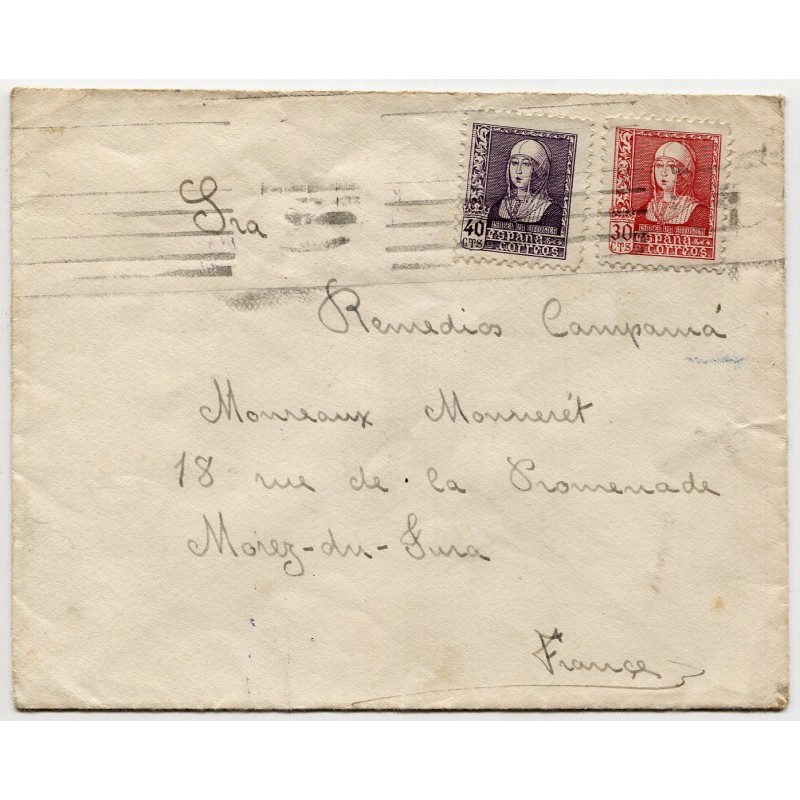 40
CTS
ISABEL LA CATOLICA
ESPAÑA
CORREOS
30
CTS
ISABEL LA CATOLICA
ESPAÑA
CORREOS
Sra
Remedios Campamá
Monreaux Monnerét
18 rue de la Promenade
Morez-du-Jura
France